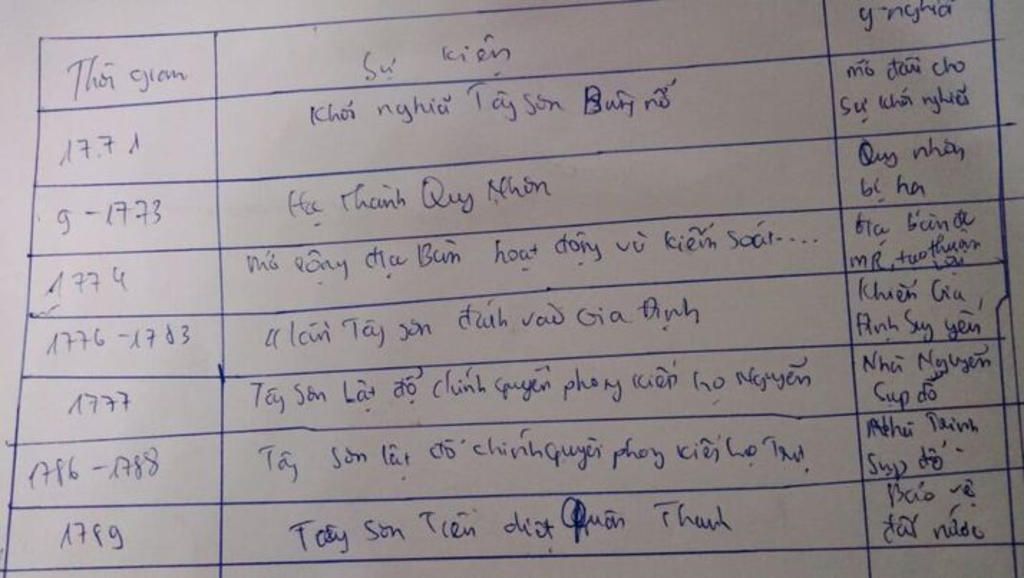 Thời gian
Sự kiện
ý nghĩa
1771
Khởi nghĩa Tây Sơn Bùng nổ
mở đầu cho
sự khởi nghĩa
9 - 1773
Hạ Thành Quy Nhơn
Quy nhơn
bị hạ
1774
mở rộng địa Bàn hoạt động và kiểm soát....
địa bàn đc
MR, tạo thuận lợi
1776 - 1783
4 lần Tây Sơn đánh vào Gia Định
khiến Gia
Định suy yếu
1777
Tây Sơn Lật đổ chính quyền phong kiến họ Nguyễn
Nhà Nguyễn
Sụp đổ
1786 - 1788
Tây Sơn lật đổ chính quyền phong kiến họ
Nhà Trịnh
Sụp đổ
1789
Tây Sơn Tiêu diệt Quân Thanh
Bảo vệ
đất nước